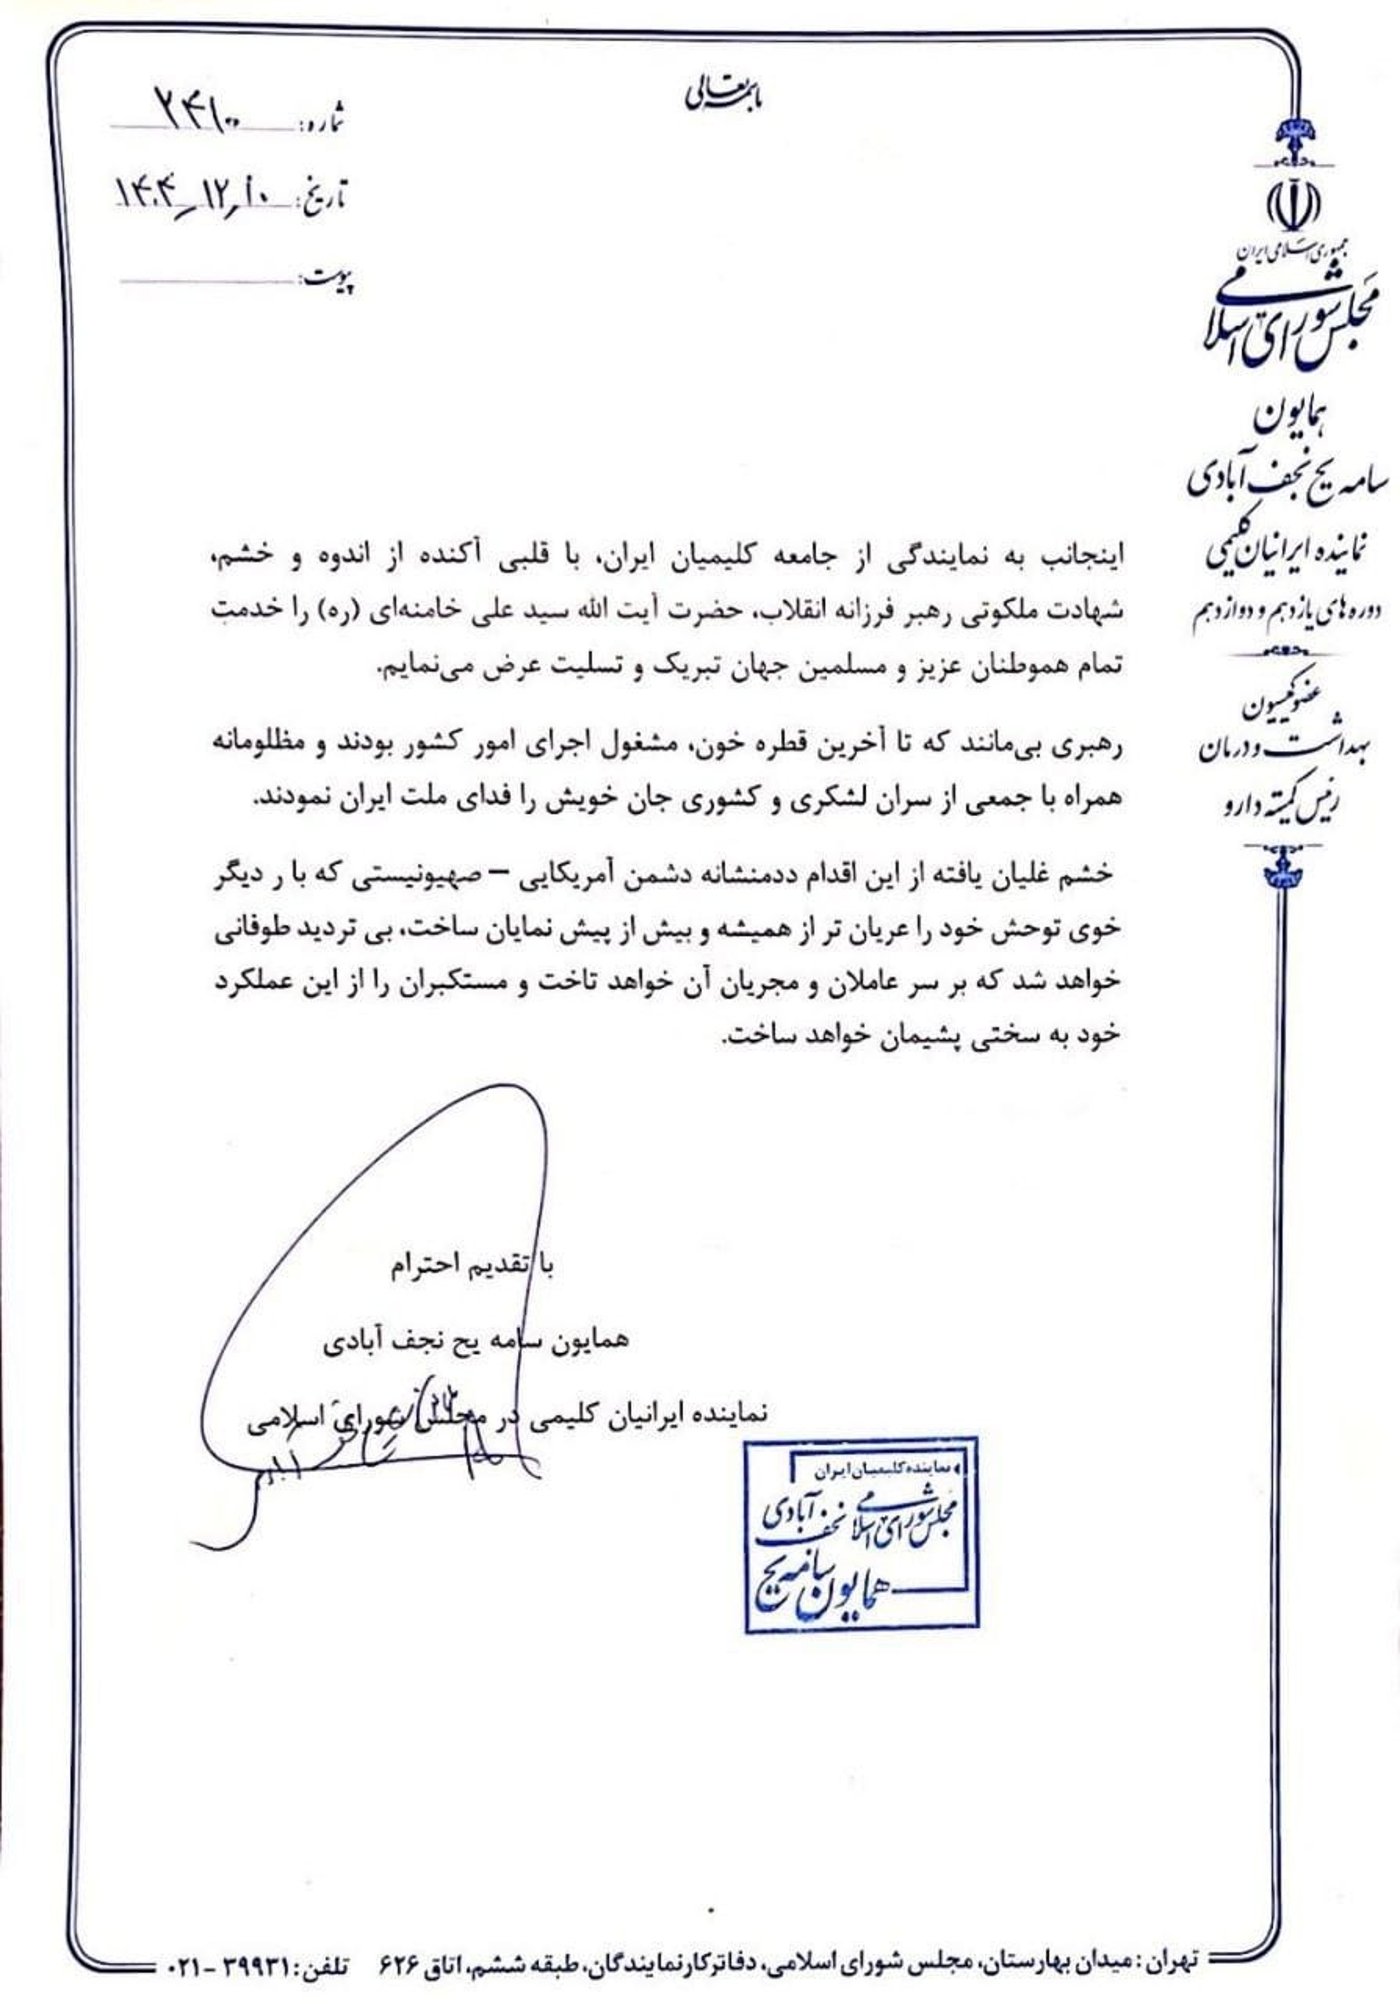 باسمه تعالی
شماره: ۲۴۱۰۰
تاریخ: ۱۴۰۴_۱۲_۱۰
پیوست:
جمهوری اسلامی ایران
مجلس شورای اسلامی
همایون
سامه یح نجف آبادی
نماینده ایرانیان کلیمی
دوره های یازدهم و دوازدهم
عضو کمیسیون
بهداشت و درمان
رئیس کمیته دارو
اینجانب به نمایندگی از جامعه کلیمیان ایران، با قلبی آکنده از اندوه و خشم،
شهادت ملکوتی رهبر فرزانه انقلاب، حضرت آیت الله سید علی خامنه‌ای (ره) را خدمت
تمام هموطنان عزیز و مسلمین جهان تبریک و تسلیت عرض می‌نمایم.
رهبری بی‌مانند که تا آخرین قطره خون، مشغول اجرای امور کشور بودند و مظلومانه
همراه با جمعی از سران لشکری و کشوری جان خویش را فدای ملت ایران نمودند.
خشم غلیان یافته از این اقدام ددمنشانه دشمن آمریکایی – صهیونیستی که با ر دیگر
خوی توحش خود را عریان تر از همیشه و بیش از پیش نمایان ساخت، بی تردید طوفانی
خواهد شد که بر سر عاملان و مجریان آن خواهد تاخت و مستکبران را از این عملکرد
خود به سختی پشیمان خواهد ساخت.
با تقدیم احترام
همایون سامه یح نجف آبادی
نماینده ایرانیان کلیمی در مجلس شورای اسلامی
نماینده کلیمیان ایران
مجلس شورای اسلامی نجف آبادی
همایون سامه یح
تهران: میدان بهارستان، مجلس شورای اسلامی، دفاتر کار نمایندگان، طبقه ششم، اتاق ۶۲۶ تلفن: ۳۹۹۳۱ -۰۲۱